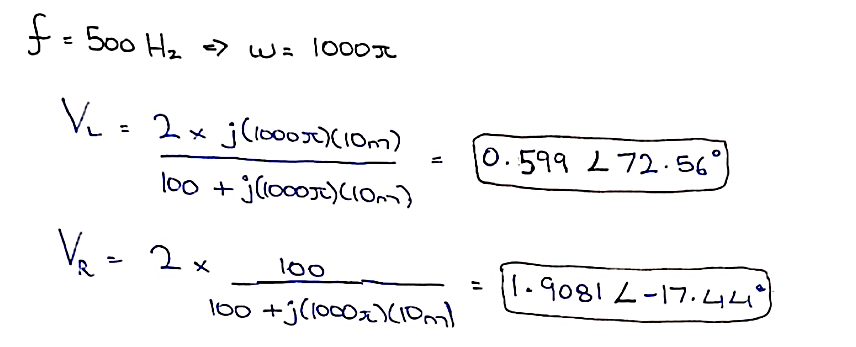 f = 500 Hz => ω = 1000π
V_L = 2 × j(1000π)(10m) / 100 + j(1000π)(10m) = 0.599 ∠ 72.56°
V_R = 2 × 100 / 100 + j(1000π)(10m) = 1.9081 ∠ -17.44°